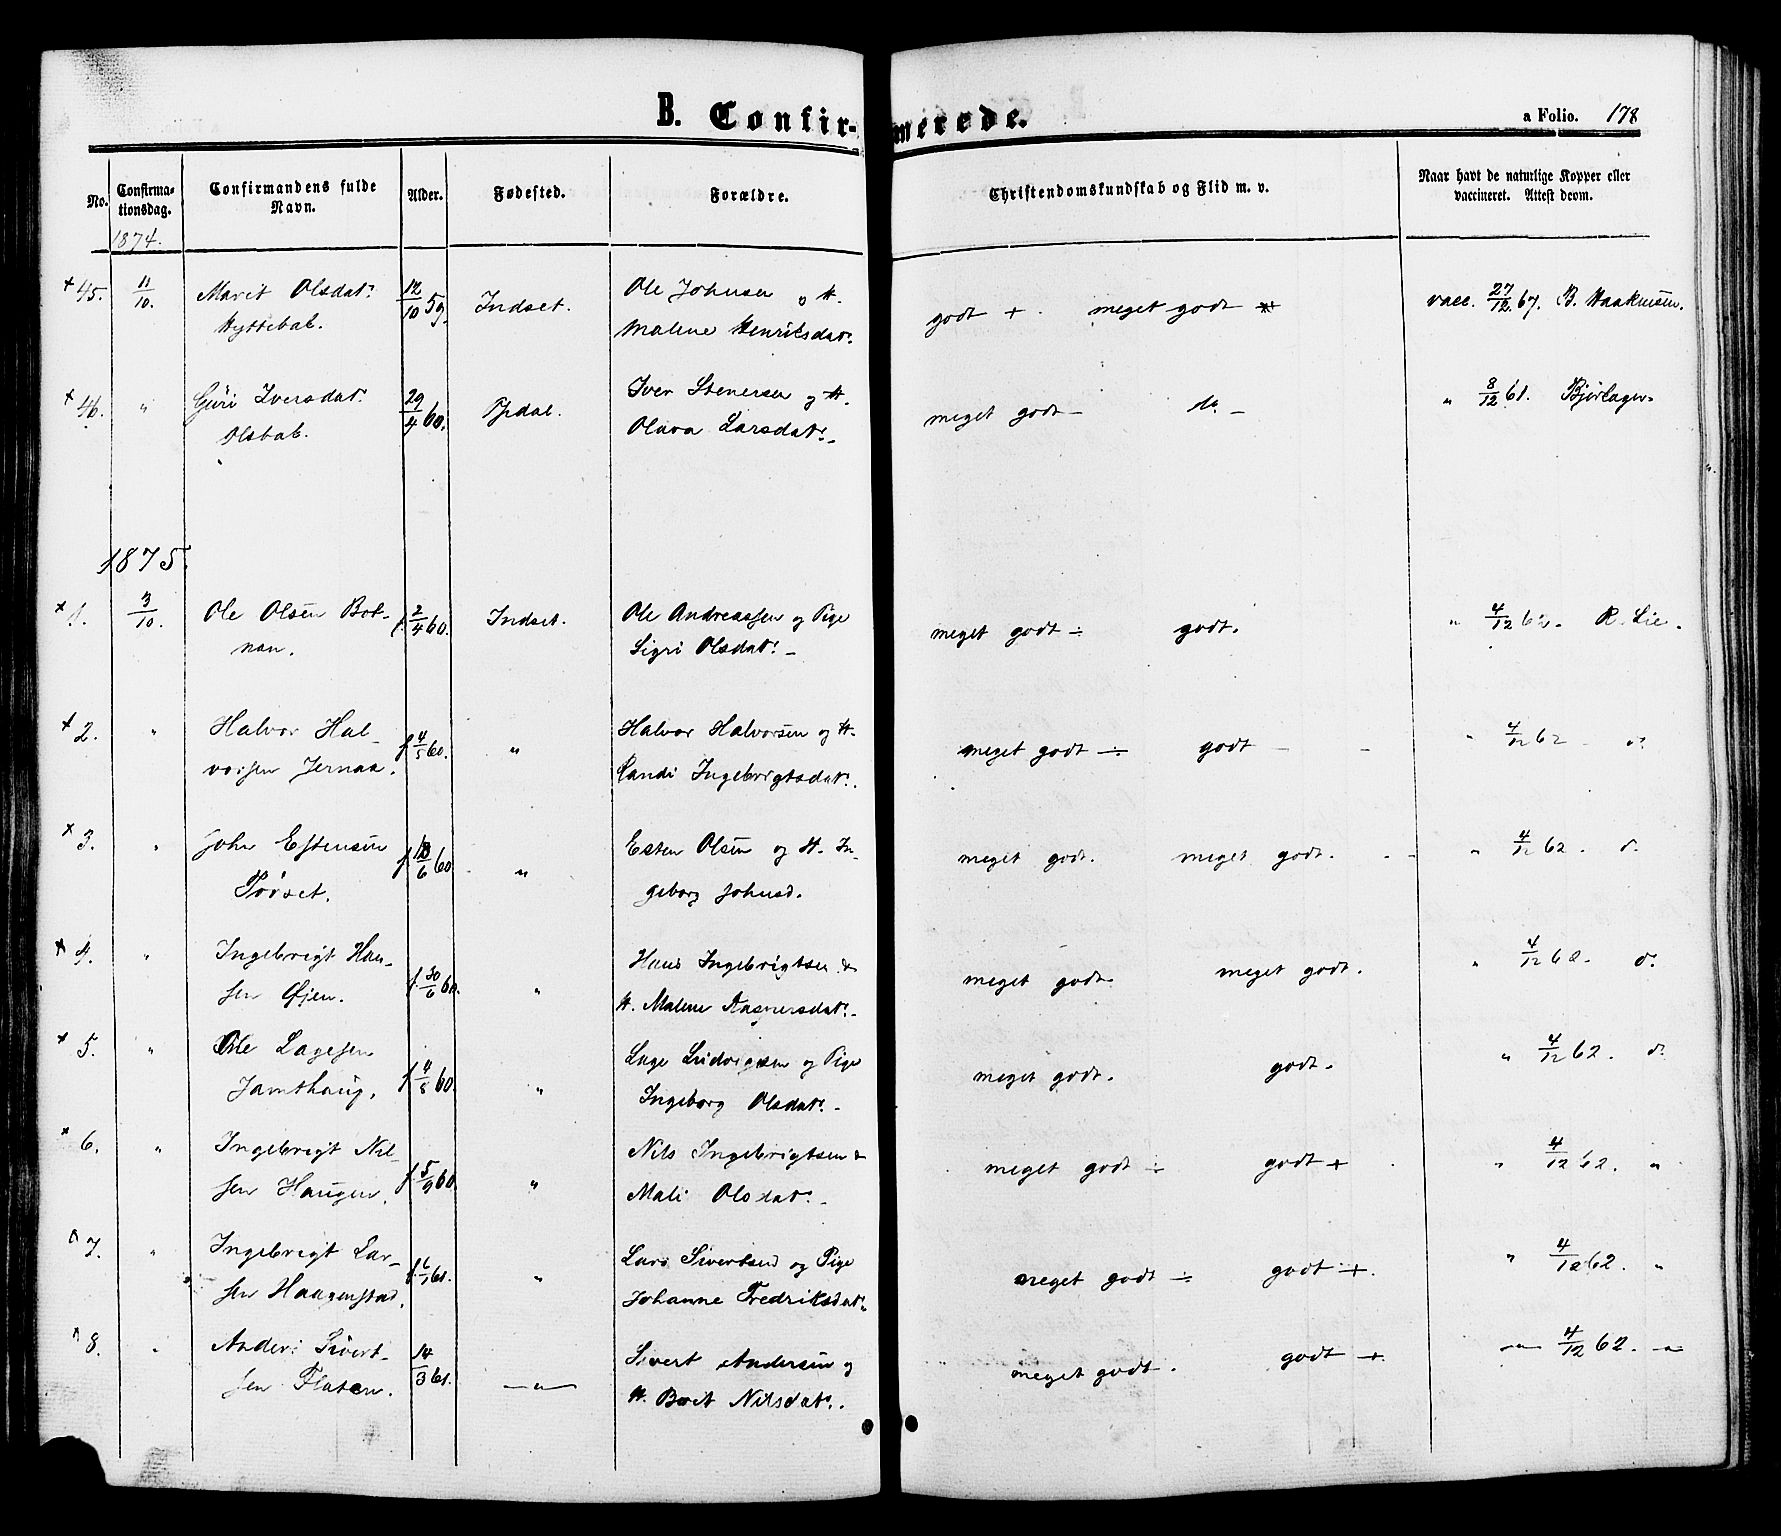 B. Confirmerede.
a Folio. 178
No. Confirmationsdag. Confirmandens fulde Navn. Alder. Fødested. Forældre. Christendomskundskab og Flid m. v. Naar havt de naturlige Kopper eller vaccineret. Attest derom.
1874.
+ 45. 11/10. Marit Olsdatr 12/10 59. Indset. Ole Johnsen og H. godt + . meget godt vacc. 27/12 67. B. Haakensen.
Hyttebak. Malene Henriksdatr.
+ 46. " Guri Iversdatr 29/4 60. Opdal. Iver Stenersen og H. meget godt - do - " 8/12 61. Bjørlager
Olsbak. Olava Larsdatr. -
1875.
+ 1. 3/10. Ole Olsen Bot- f. 2/4 60. Indset. Ole Andreassen og Pige meget godt ÷ godt. " 4/12 62. R. Lie.
nan. Sigri Olsdatr. -
+ 2. " Halvor Hal- f. 4/5 60. " Halvor Halvorsen og H. meget godt ÷ godt - - " 4/12 62 - do
vorsen Jernaa. Randi Ingebrigtsdatr.
+ 3. " John Estensen f. 13/6 60. " Esten Olsen og H. In- meget godt. meget godt. " 4/12 62. do
Tørset. geborg Johnsd.
+ 4. " Ingebrigt Han- f. 30/6 60. " Hans Ingebrigtsen & meget godt meget godt. " 4/12 62. do
sen Øjen. H. Malene Aagnersdatr. -
+ 5. " Ole Lagesen f. 4/8 60. " Lage Ludvigsen og Pige meget godt. godt. " 4/12 62. do
Jamthaug. Ingeborg Olsdatr. -
+ 6. " Ingebrigt Nil- f. 5/9 60. " Nils Ingebrigtsen & meget godt ÷ godt + " 4/12 62. "
sen Haugen. Mali Olsdatr. -
7. " Ingebrigt Lar- f. 6/1 61. " Lars Sivertsen og Pige meget godt ÷ godt + . " 4/12 62. "
sen Haagenstad. Johanne Fredriksdatr
8. " Anders Sivert- 14/3 61. — " — Sivert Andersen og meget godt. godt + . — " — 4/12 62. — " —
sen Flaten. H. Borit Nilsdatr.